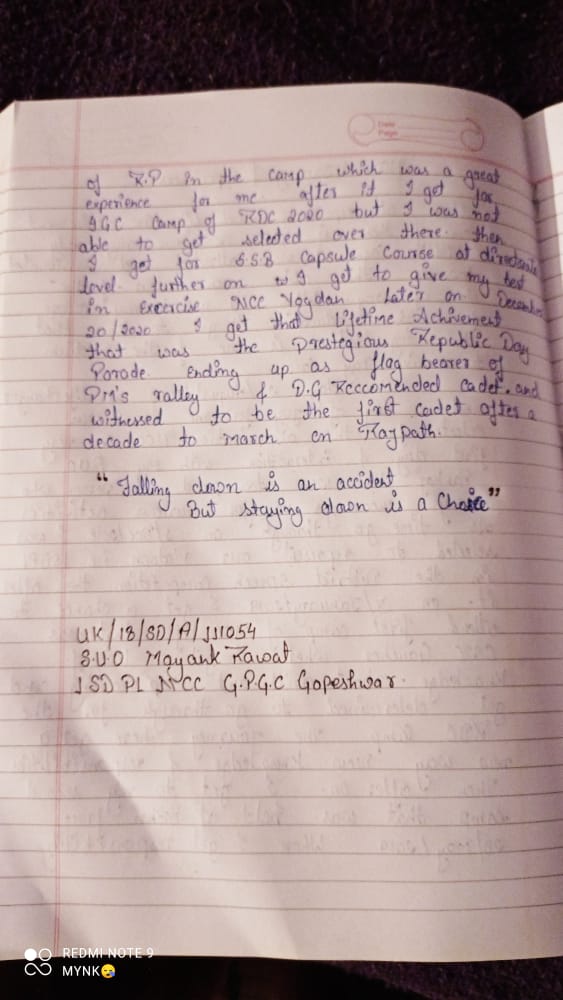 Date
Page
of R.P in the camp which was a great
experience for me after it I get for
IGC camp of RDC 2020 but I was not
able to get selected over there. then
I get for S.S.B capsule course at directorate
level further on I get to give my best
in Excercise NCC Yogdan later on December
20/2020 I get that Lifetime Achivement
that was the Prestegious Republic Day
Parade Ending up as flag bearer of
PM's ralley & D.G Reccomended cadet. and
witnessed to be the first cadet after a
decade to march on Rajpath.
"Falling down is an accident
But staying down is a Choice"
UK/18/SD/A/111054
S.U.O Mayank Rawat
1 SD PL NCC G.P.G.C Gopeshwar.
REDMI NOTE 9
MYNK😪